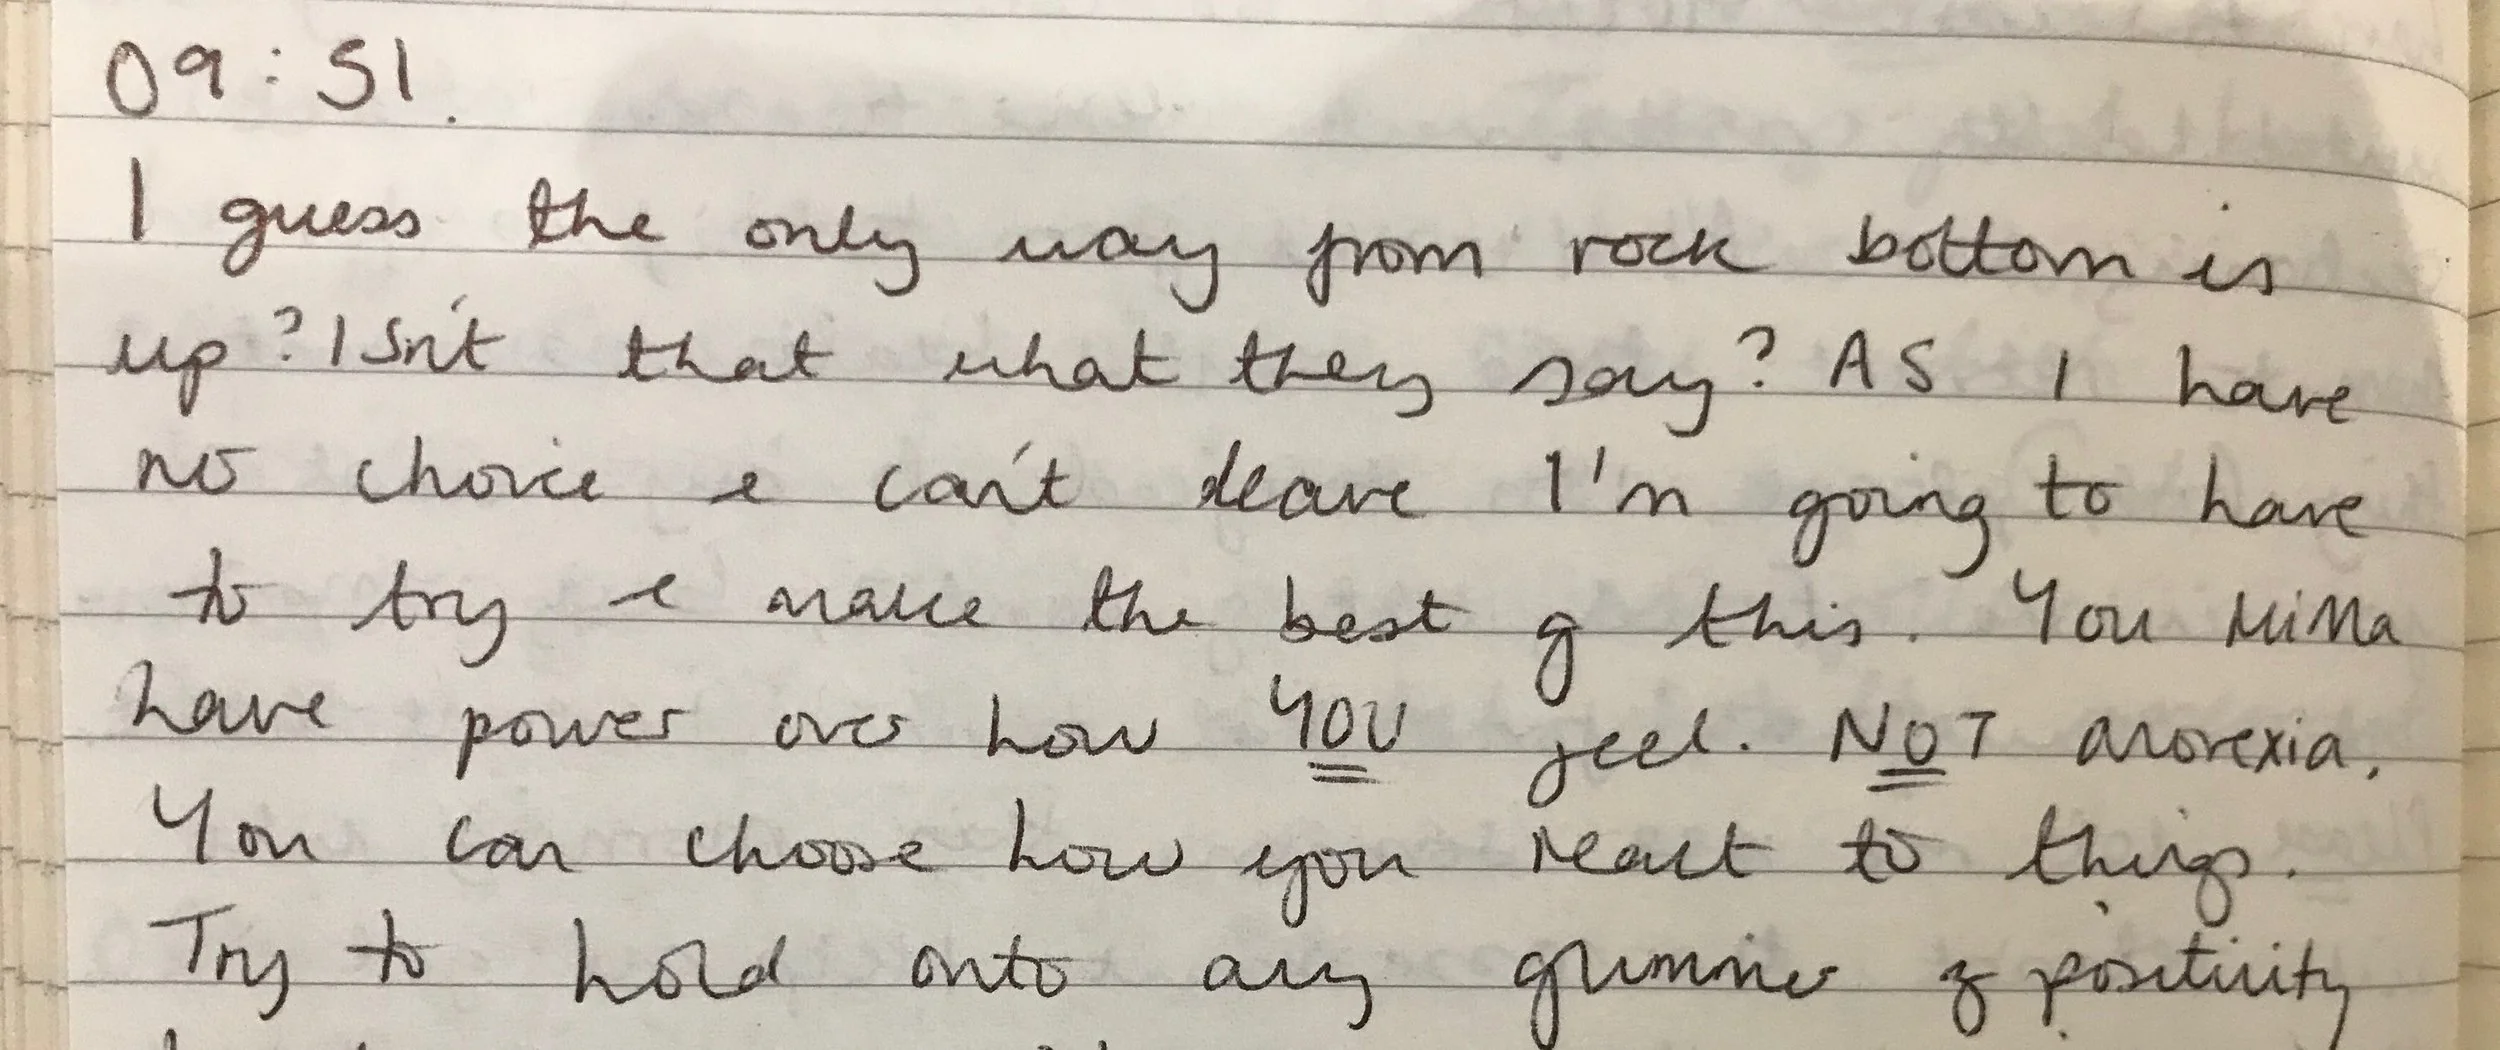 09:51.
I guess the only way from rock bottom is
up? Isn't that what they say? AS I have
no choice & can't leave I'm going to have
to try & make the best of this. You MiMa
have power over how YOU feel. NOT anorexia.
You can choose how you react to things.
Try to hold onto any glimmer of positivity